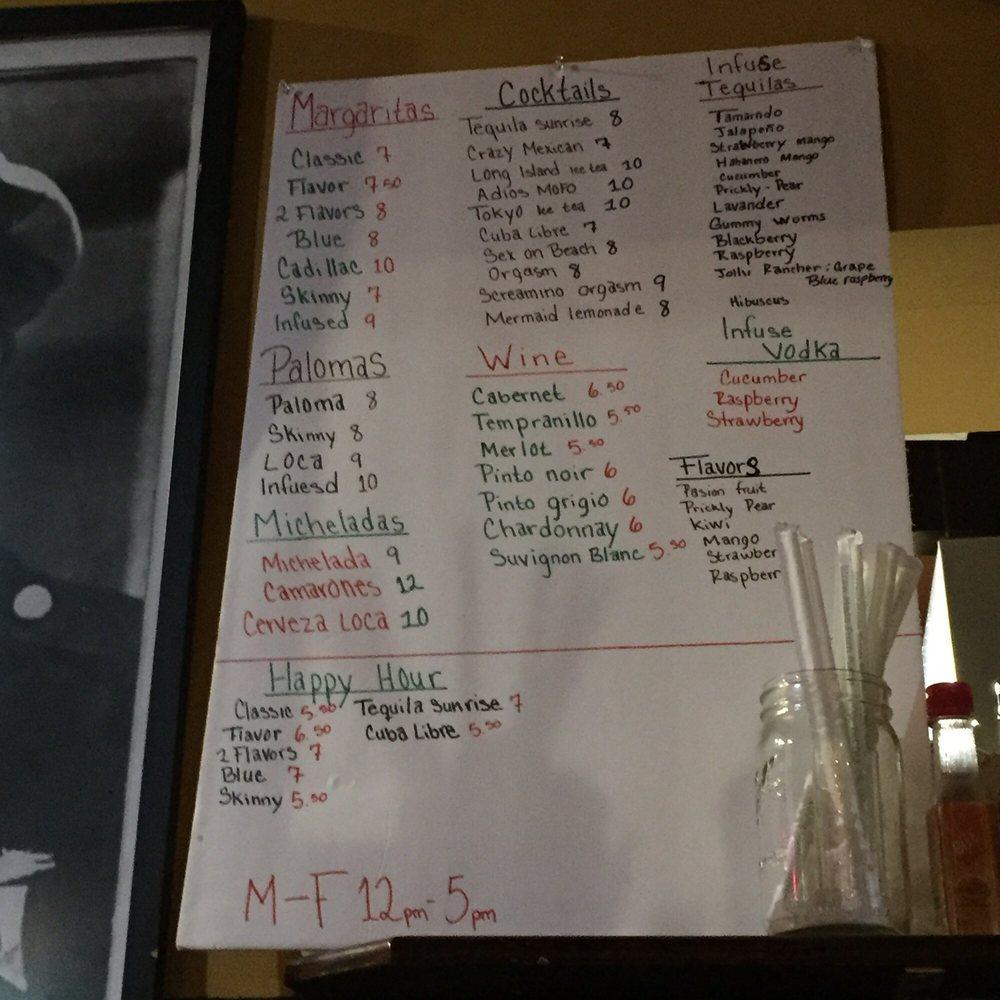 Margaritas
Classic 7
Flavor 7 50
2 Flavors 8
Blue 8
Cadillac 10
Skinny 7
Infused 9
Palomas
Paloma 8
Skinny 8
Loca 9
Infuesd 10
Micheladas
Michelada 9
Camarones 12
Cerveza Loca 10
Cocktails
Tequila sunrise 8
Crazy Mexican 7
Long Island Ice tea 10
Adios MoFo 10
Tokyo Ice tea 10
Cuba Libre 7
Sex on Beach 8
Orgasm 8
Screamino orgasm 9
Mermaid lemonade 8
Wine
Cabernet 6.50
Tempranillo 5.50
Merlot 5.50
Pinto noir 6
Pinto grigio 6
Chardonnay 6
Suvignon Blanc 5.50
Infuse
Tequilas
Tamarndo
Jalapeño
Strawberry mango
Habanero Mango
Cucumber
Prickly-Pear
Lavander
Gummy worms
Blackberry
Raspberry
Jolly Rancher: Grape
Blue raspberry
Hibuscus
Infuse
Vodka
Cucumber
Raspberry
Strawberry
Flavors
Pasion fruit
Prickly Pear
Kiwi
Mango
Strawber
Raspberr
Happy Hour
Classic 5.50 Tequila Sunrise 7
Flavor 6.50 Cuba Libre 5.50
2 Flavors 7
Blue 7
Skinny 5.50
M-F 12pm-5pm